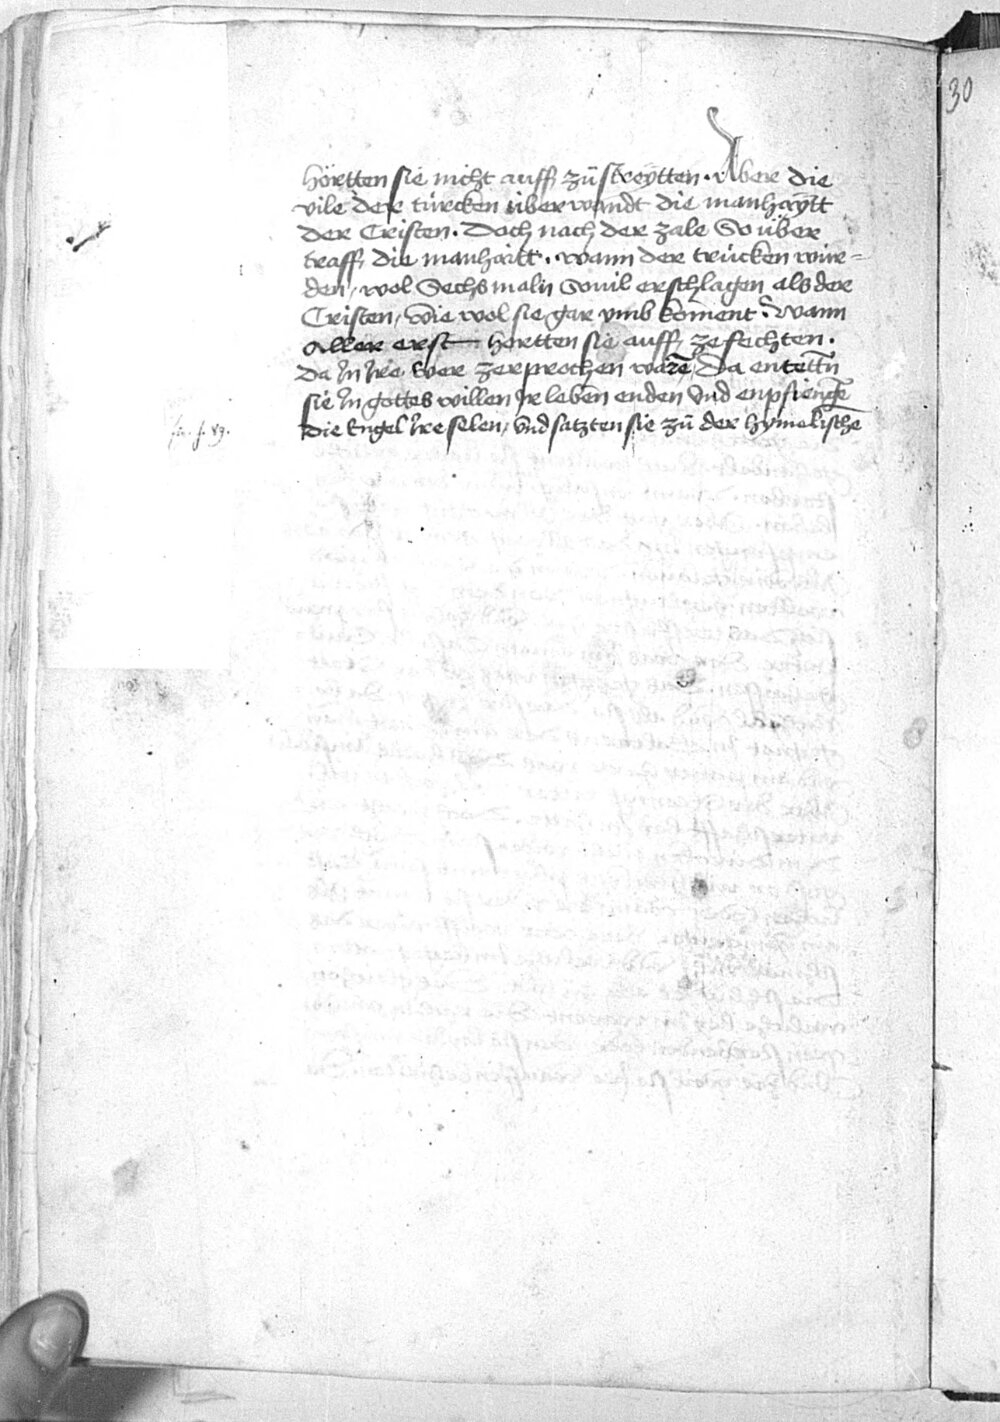 hörtten sie nicht auff zů streÿtten · Aber die
vile der türcken überwandt die manhaÿtt
der Cristen · Doch nach der zale So über
traff die manhaitt · wann der trücken wür=
den, wol Sechs maln souil erschlagen als der
Cristen, wie wol sie gar vmb koment · wann
Aller erst hortten sie auff zefechten ·
Da In Ire wer zerprochen warē, Da entettn̄
sie In gottes willen Ir leben enden vnd enpfienge
die Engel Ire selen, vnd satzten sie zů der hymelische
30